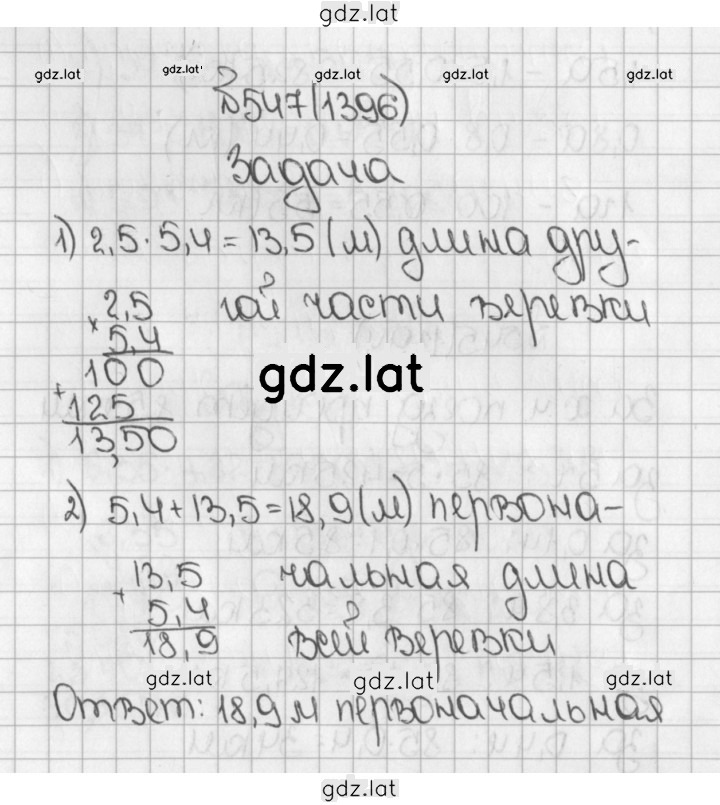 gdz.lat
gdz.lat gdz.lat gdz.lat gdz.lat gdz.lat
№547(1396)
Задача
1) 2,5·5,4=13,5(м) длина дру-
гой части веревки
× 2,5
5,4
100
gdz.lat
+ 125
13,50
2) 5,4+13,5=18,9(м) первона-
чальная длина
всей веревки
+ 13,5
5,4
18,9
gdz.lat gdz.lat gdz.lat
Ответ: 18,9 м первоначальная
gdz.lat